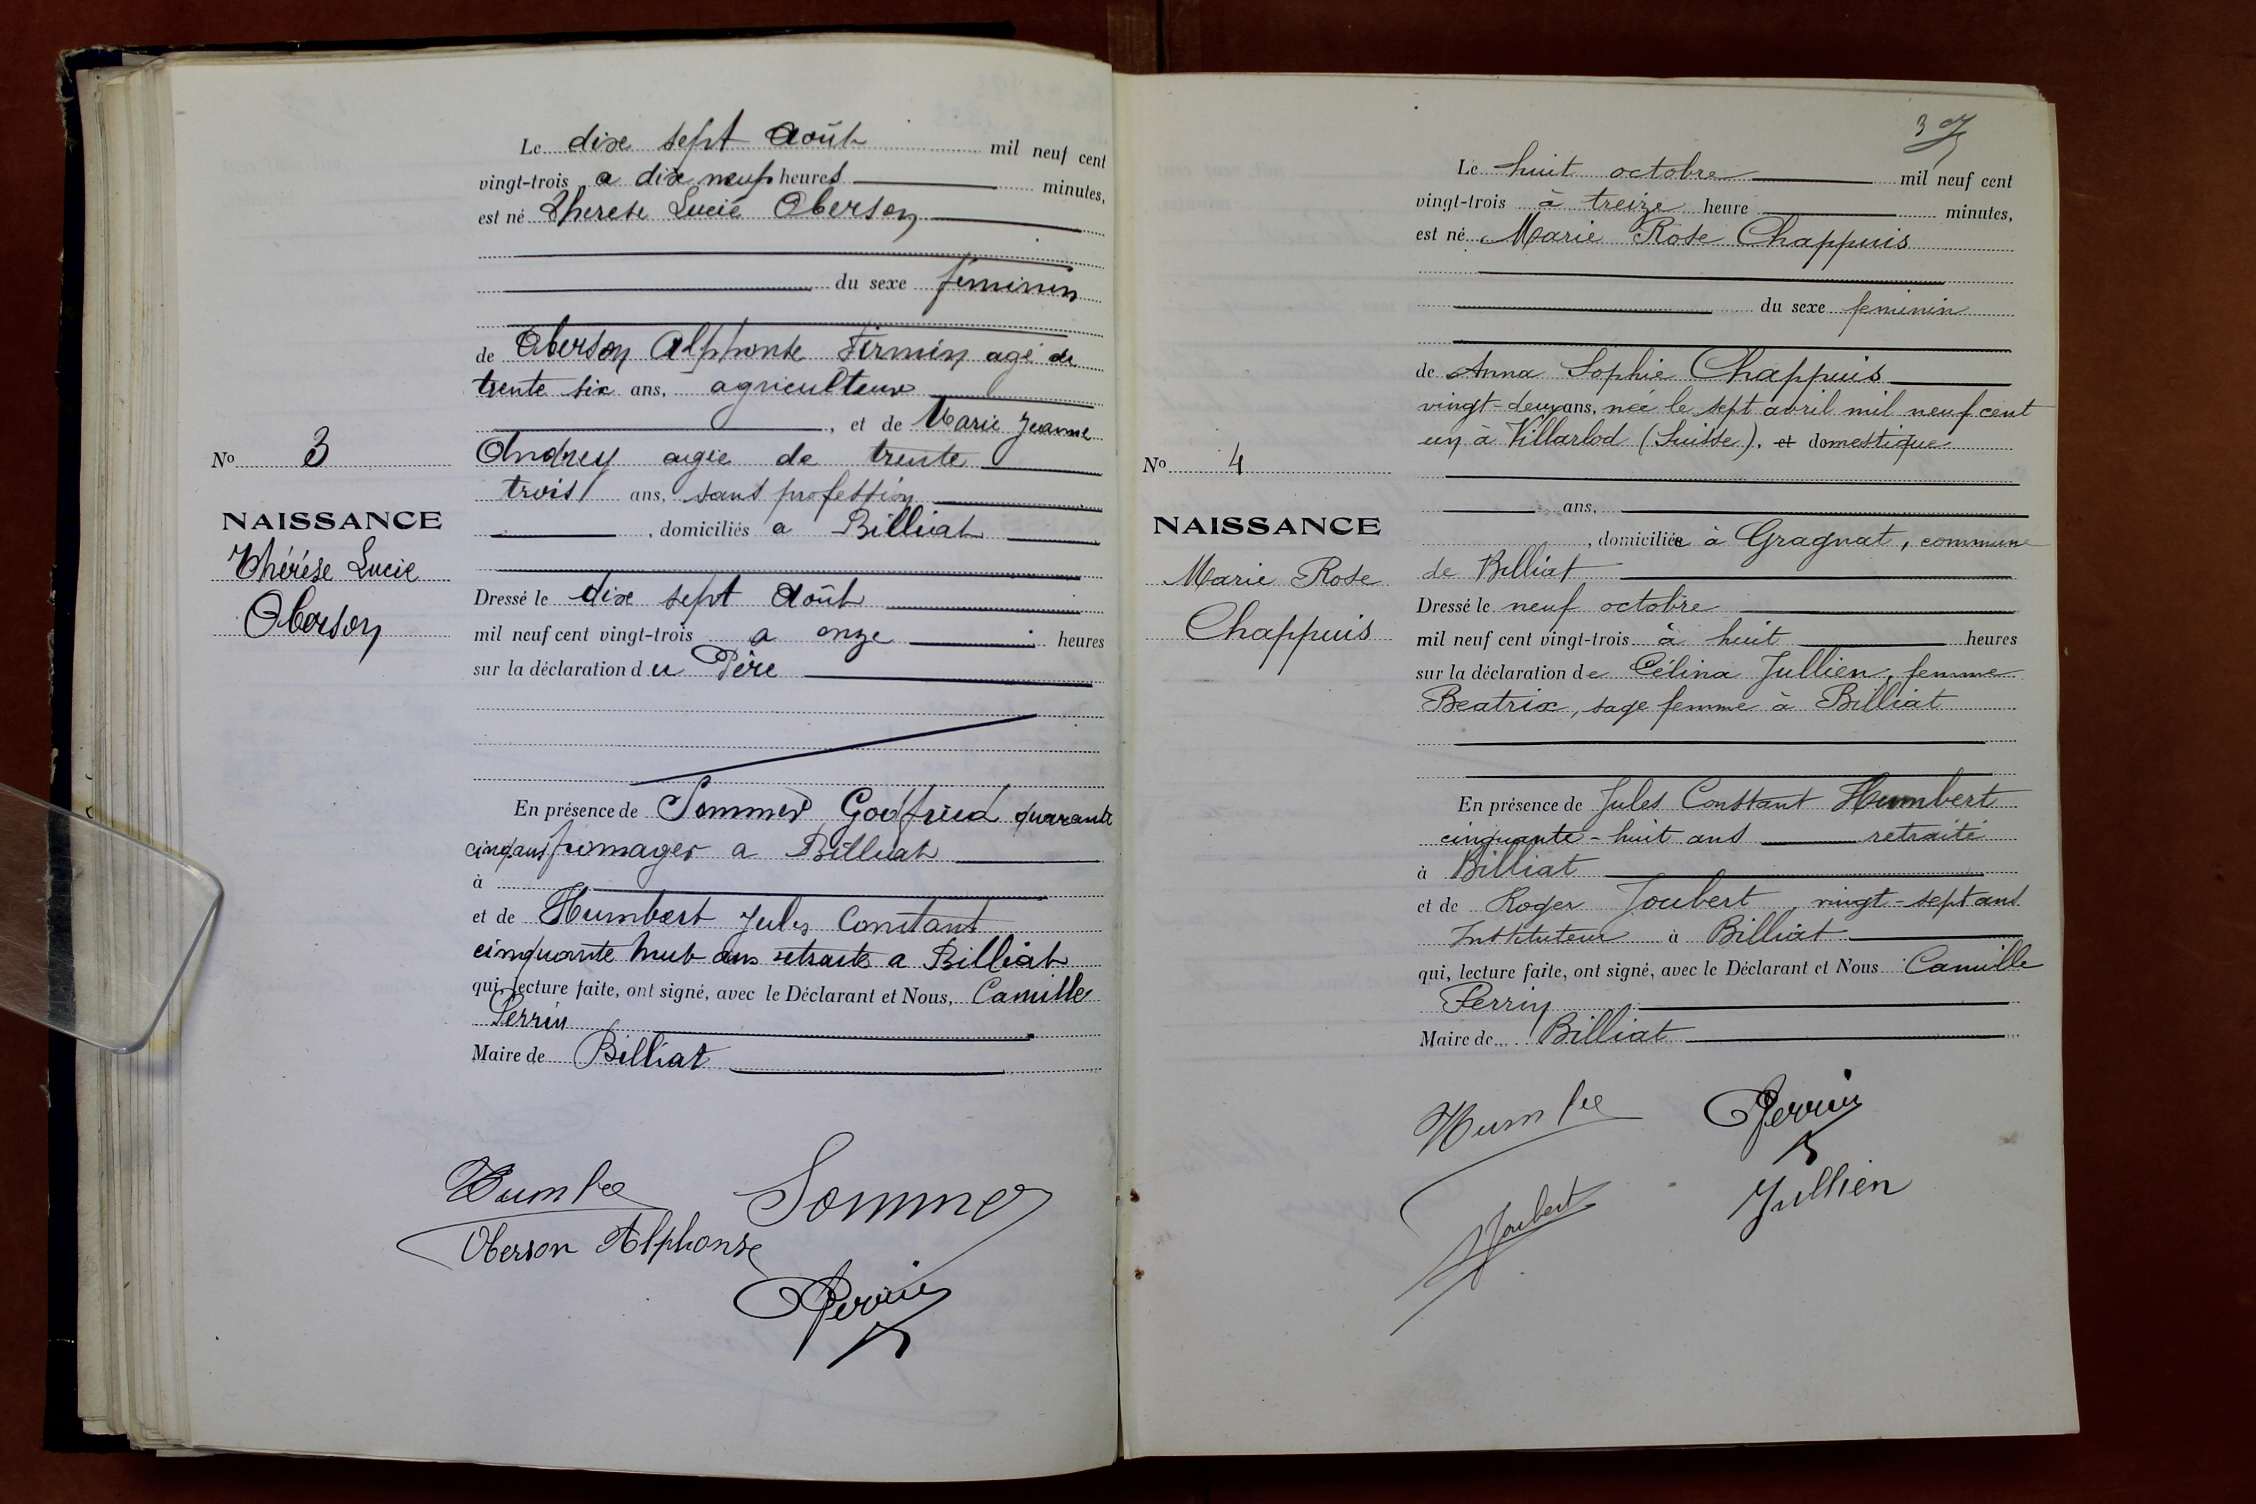 Le dixe sept Août mil neuf cent
vingt-trois a dixe neuf heures minutes,
est né Therese Lucie Oberson
du sexe féminin
de Oberson Alphonse Firmin agé de
trente six ans, agriculteur
, et de Marie Jeanne
Andrey agée de trente
trois ans, sans profession
, domiciliés a Billiat
No 3
NAISSANCE
Thérése Lucie
Oberson
Dressé le dixe sept Août
mil neuf cent vingt-trois a onze heures
sur la déclaration du Père
En présence de Sommer Godfried quarante
cinq ans fromager a Billiat
à
et de Humbert Jules Constant
cinquante huit ans retraité a Billiat
qui, lecture faite, ont signé, avec le Déclarant et Nous, Camille
Perrin
Maire de Billiat
Humbe Sommer
Oberson Alphonse
Perrin
37
Le huit octobre mil neuf cent
vingt-trois à treize heure minutes,
est né Marie Rose Chappuis
du sexe feminin
de Anna Sophie Chappuis
vingt-deux ans, née le sept avril mil neuf cent
un à Villarlod (Suisse), et domestique
ans,
, domiciliée à Gragnat, commune
de Billiat
No 4
NAISSANCE
Marie Rose
Chappuis
Dressé le neuf octobre
mil neuf cent vingt-trois à huit heures
sur la déclaration de Célina Jullien, femme
Beatrix, sage femme à Billiat
En présence de Jules Constant Humbert
cinquante-huit ans retraité
à Billiat
et de Roger Joubert, vingt-sept ans
Instituteur à Billiat
qui, lecture faite, ont signé, avec le Déclarant et Nous Camille
Perrin
Maire de Billiat
Humbe Perrin
Joubert Jullien